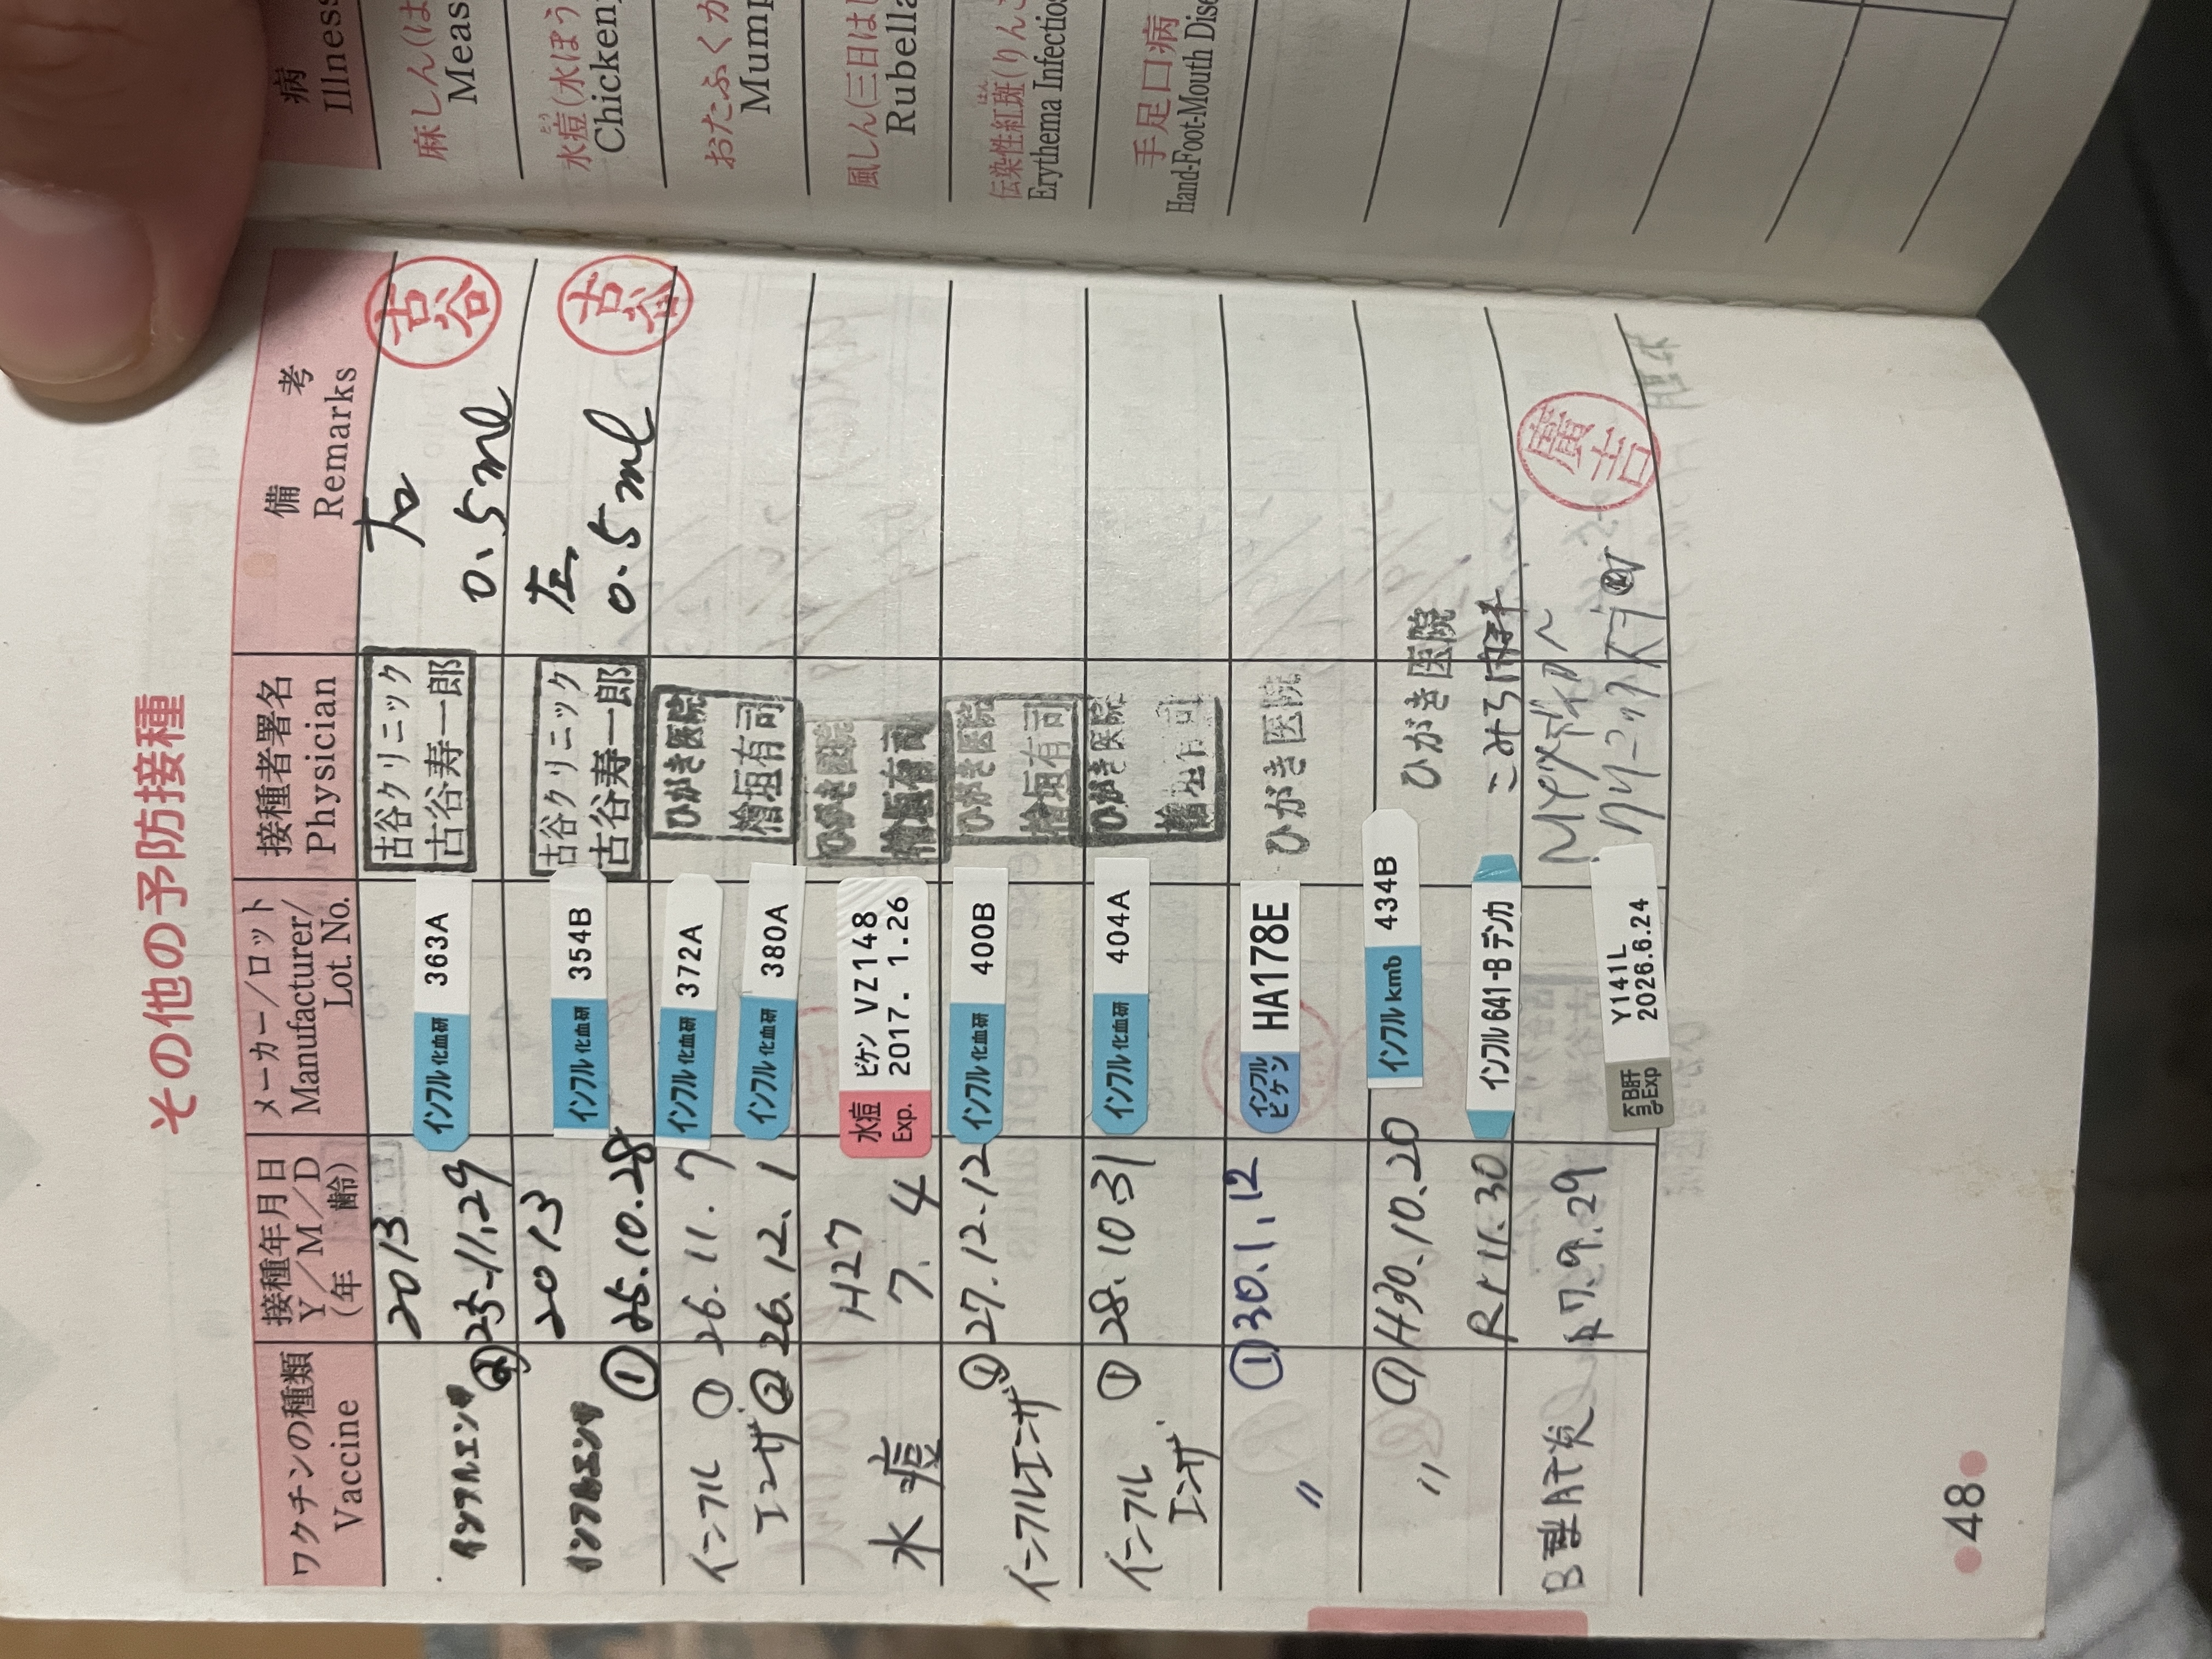 その他の予防接種
ワクチンの種類
Vaccine
接種年月日
Y/M/D
(年 齢)
メーカー/ロット
Manufacturer/
Lot. No.
接種者署名
Physician
備 考
Remarks
インフルエンザ
②
2013
25.11.29
インフル 化血研 363A
古谷クリニック
古谷寿一郎
右
0.5ml
古谷
インフルエンザ
①
2013
25.10.28
インフル 化血研 354B
古谷クリニック
古谷寿一郎
左
0.5ml
古谷
インフル ① 26.11.7
インフル 化血研 372A
エンザ ② 26.12.1
インフル 化血研 380A
ひがき医院
檜垣有司
水痘
H27
7.4
水痘 ビケン VZ148
Exp. 2017. 1.26
ひがき医院
檜垣有司
インフルエンザ
① 27.12.12
インフル 化血研 400B
ひがき医院
檜垣有司
インフル
エンザ
① 28.10.31
インフル 化血研 404A
ひがき医院
檜垣有司
〃
① 30.1.12
インフル
ビケン
HA178E
ひがき医院
〃
① H30.10.20
インフル kmb 434B
ひがき医院
R1 11.30
インフル 641-B デンカ
B型肝炎
R7.9.29
B肝 Y141L
Exp 2026.6.24
クリニック
廣吉
●48●
病
Illness
麻しん(は
Meas
水痘(水ぼう
とう
Chicken
おたふくか
Mump
風しん(三日はし
Rubella
伝染性紅斑(りんご
はん
Erythema Infectios
手足口病
Hand-Foot-Mouth Dise